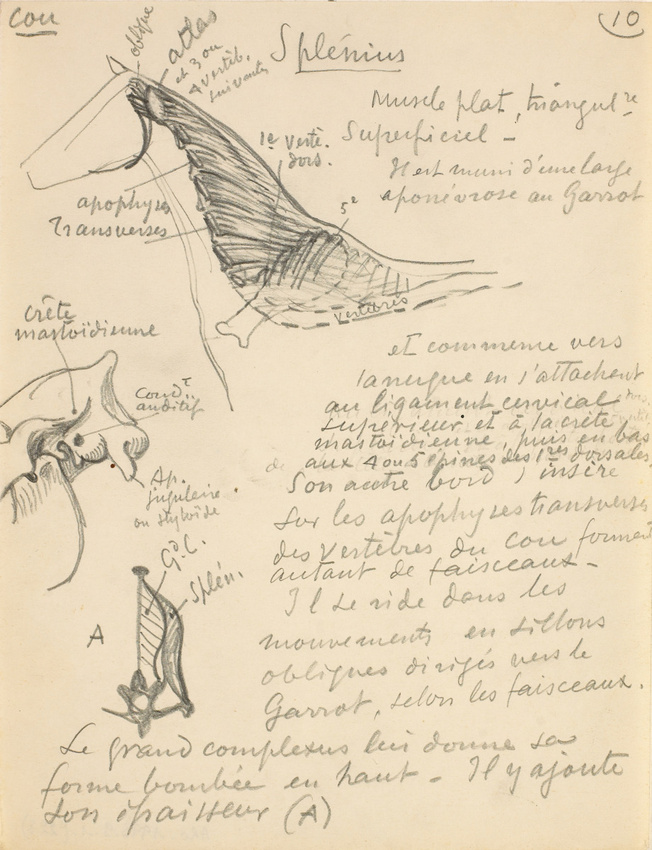 Cou
10
Splénius
oblique
atlas
et 3 ou
4 vertèb.
suivantes
Muscle plat, triangulre
Superficiel –
1e Vertè.
dors.
Il est muni d'une large
aponévrose au Garrot
5e
apophyses
Transverses
vertèbres
Crête
mastoïdienne
Condt
auditif
Ap.
jugulaire
ou styloïde
et commence vers
la nuque en s'attachant
au ligament cervical
supérieur et à la crête
mastoïdienne, puis en bas
aux 4 ou 5 épines des 1res dorsales
Son autre bord s'insère
sur les apophyses transverses
des vertèbres du cou formant
autant de faisceaux –
Gd. C.
Splén.
A
Il se ride dans les
mouvements en sillons
obliques dirigés vers le
Garrot, selon les faisceaux.
Le grand complexus lui donne sa
forme bombée en haut – Il y ajoute
son épaisseur (A)